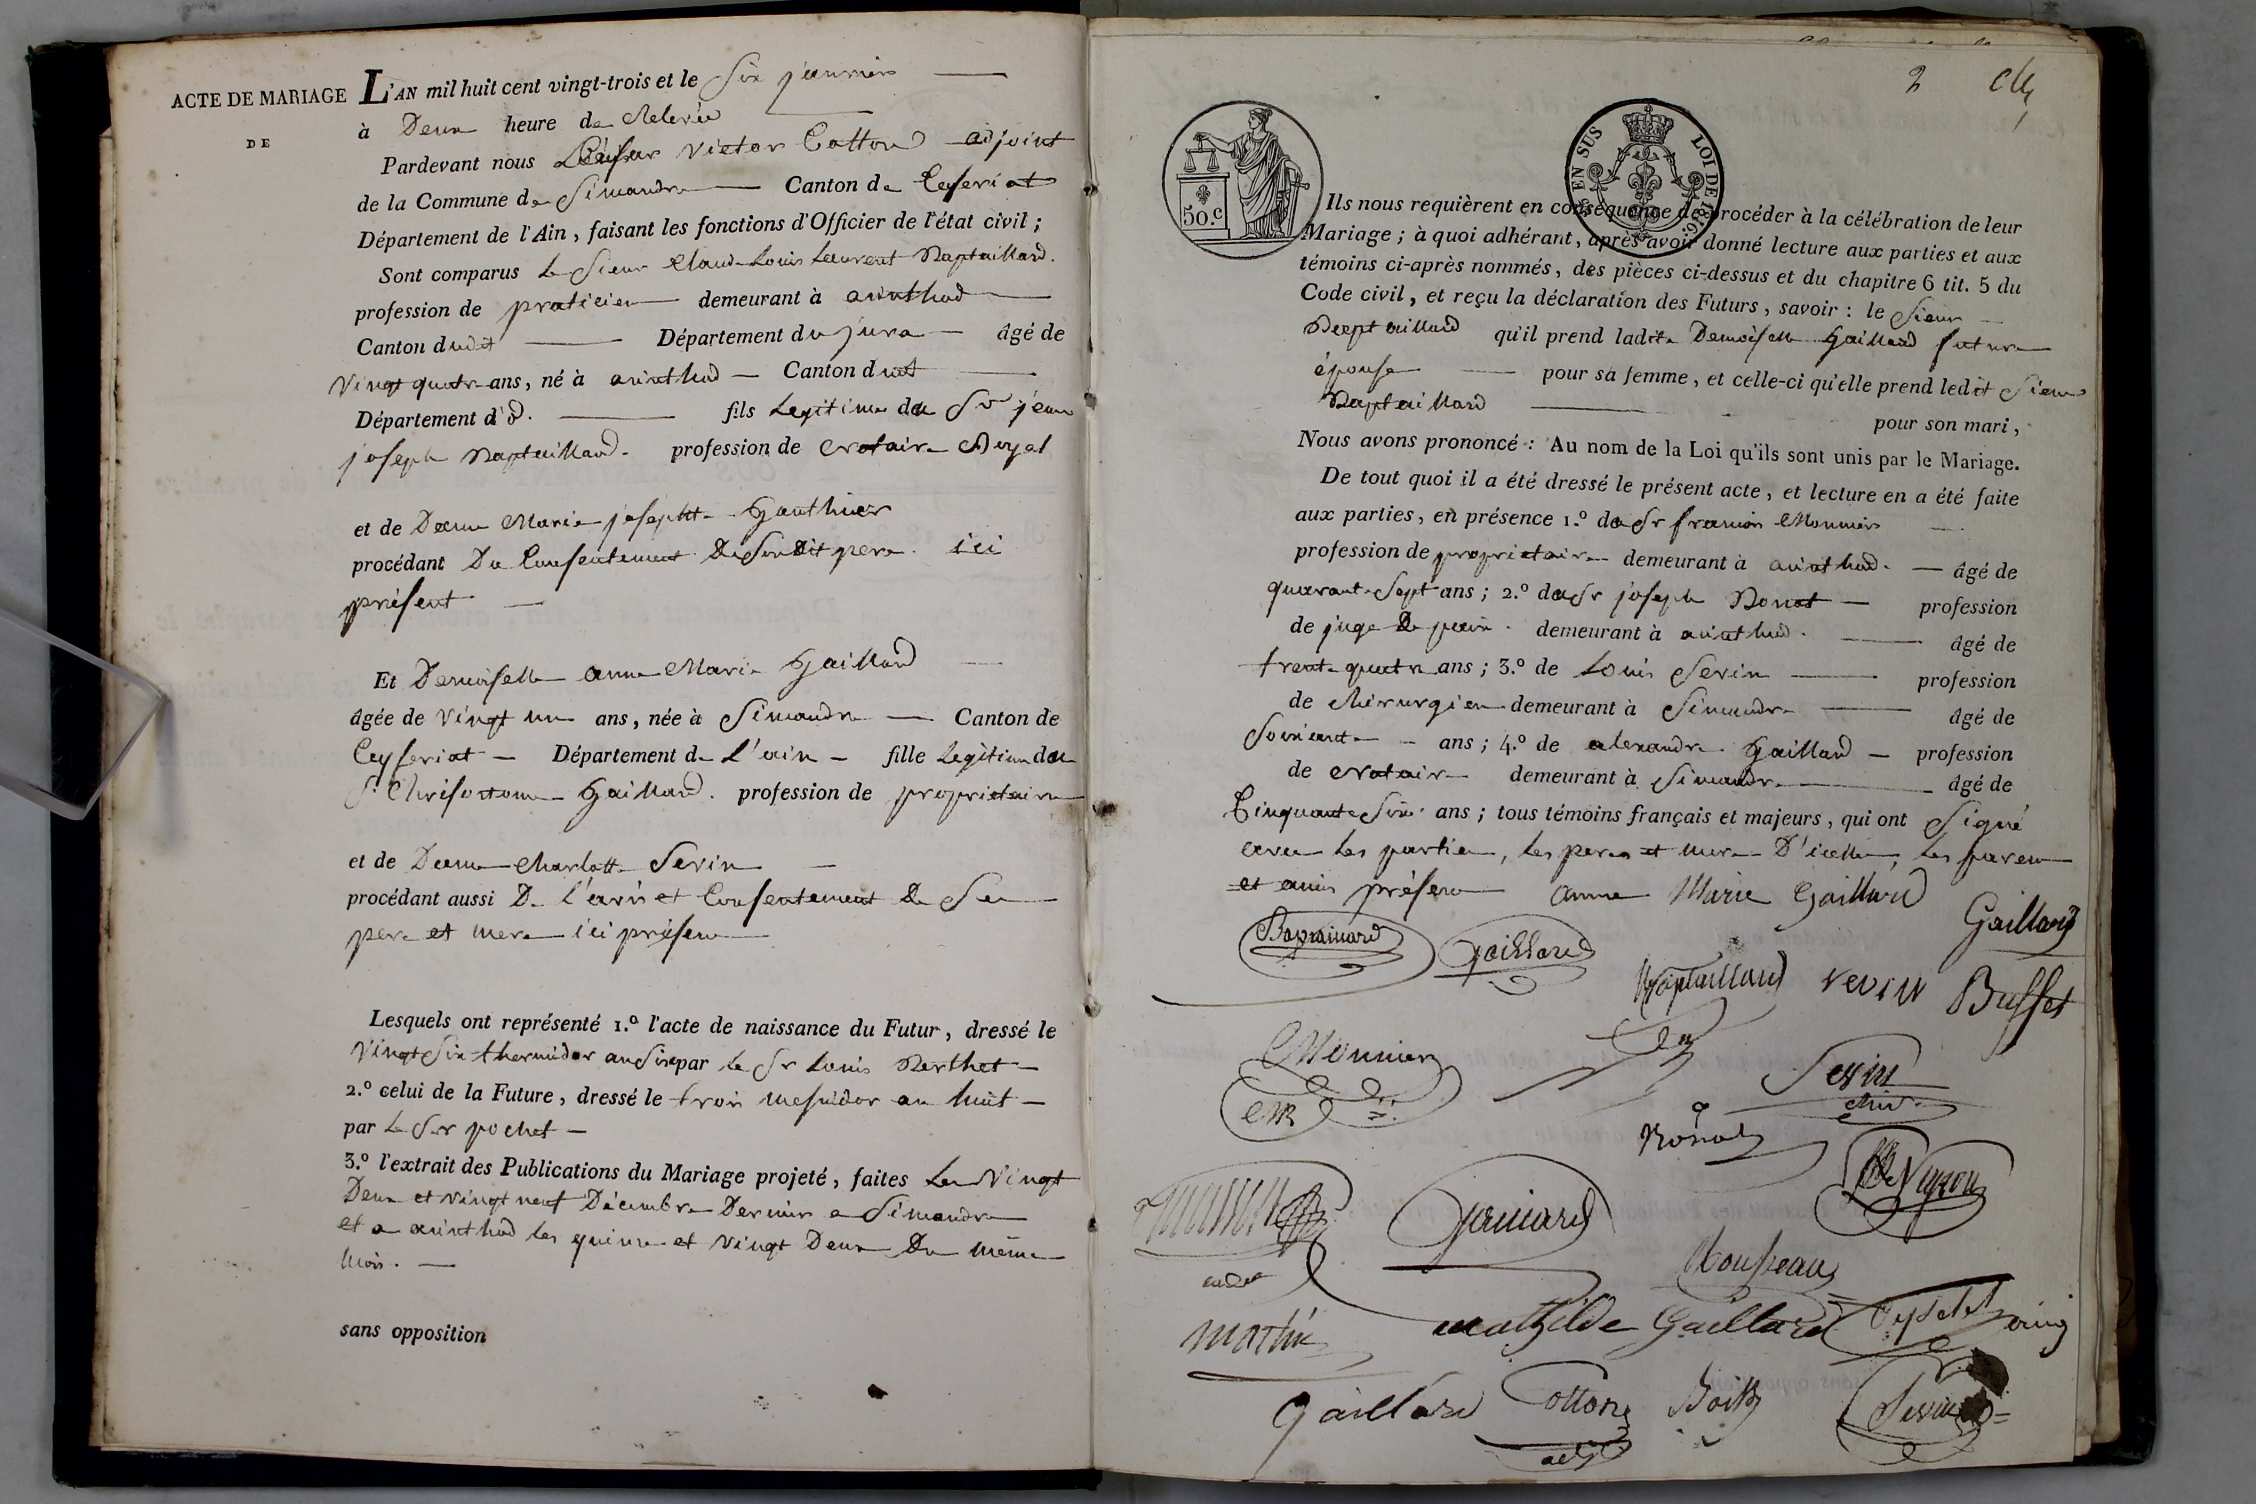 ACTE DE MARIAGE
DE
L'AN mil huit cent vingt-trois et le Six janvier
à Deux heure de Relevée
Pardevant nous César Victor Cotton adjoint
de la Commune de Simandre Canton de Ceyseriat
Département de l'Ain, faisant les fonctions d'Officier de l'état civil;
Sont comparus le Sieur Claude Louis Laurent Raptaillard.
profession de praticien demeurant à arinthod
Canton dudit Département du jura âgé de
Vingt quatre ans, né à arinthod Canton dudt
Département d'o. fils Legitime de Sr jean
joseph Raptaillard. profession de Notaire Royal
et de Dame Marie josephte Gauthier
procédant Du Consentement De Son Dit pere. ici
présent
Et Demoiselle anne Marie Gaillard
âgée de vingt un ans, née à Simandre Canton de
Ceyseriat Département de L'ain fille Legitime de
Sr. Chrisostome Gaillard. profession de propriétaire
et de Dame Charlotte Servin
procédant aussi De l'avis et Consentement De Ses
pere et mere ici présens
Lesquels ont représenté 1.º l'acte de naissance du Futur, dressé le
Vingt Six thermidor an Six par le Sr Louis Berthet
2.º celui de la Future, dressé le trois messidor an huit
par le Sr pochet
3.º l'extrait des Publications du Mariage projeté, faites Les Vingt
Deux et vingt neuf Décembre Dernier a Simandre
et a arinthod les quinze et vingt Deux Du même
Mois.
sans opposition
2
50.c
EN SUS
LOI DE 1816.
Ils nous requièrent en conséquence de procéder à la célébration de leur
Mariage; à quoi adhérant, après avoir donné lecture aux parties et aux
témoins ci-après nommés, des pièces ci-dessus et du chapitre 6 tit. 5 du
Code civil, et reçu la déclaration des Futurs, savoir: le Sieur
Raptaillard qu'il prend ladite Demoiselle Gaillard future
épouse pour sa femme, et celle-ci qu'elle prend ledit Sieur
Raptaillard
pour son mari,
Nous avons prononcé: Au nom de la Loi qu'ils sont unis par le Mariage.
De tout quoi il a été dressé le présent acte, et lecture en a été faite
aux parties, en présence 1.º de Sr francois Monnier
profession de propriétaire demeurant à arinthod. âgé de
quarante Sept ans; 2.º de Sr joseph Bonnot profession
de juge De paix. demeurant à arinthod. âgé de
trente quatre ans; 3.º de Louis Servin profession
de Chirurgien demeurant à Simandre âgé de
Soixante ans; 4.º de alexandre Gaillard profession
de Notaire demeurant à Simandre âgé de
Cinquante Six ans; tous témoins français et majeurs, qui ont Signé
avec les parties, les peres et mere D'icelles, les parens
et amis présens anne Marie Gaillard
Gaillard
Gaillard
Raptaillard
Buffet
Monnier
Servin
chir.
Gaillard
Rousseau
cadet
martin
mathilde Gaillard
Gaillard
Cotton
adj
Servin